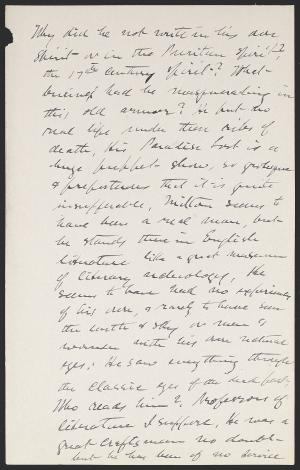 Why did he not write in his own
spirit - or in the Puritan spirit?,
the 17th century spirit? What
business had he masquerading in
this old armor? He put no
real life under these ribs of
death, His Paradise Lost is a
huge puppet-show, so grotesque
& preposterous that it is quite
insufferable, Milton seems to
have been a real man, but
he stands there in English
literature like a great museum
of literary archeology, He
seems to have had no experiences
of his own, & rarely to have seen
the earth & sky or men &
women with his own natural
eyes; He saw everything through
the classic eyes of the dead past,
Who reads him? Professors of
literature I suppose, He was a
great craftsman no doubt-
but he has been of no service